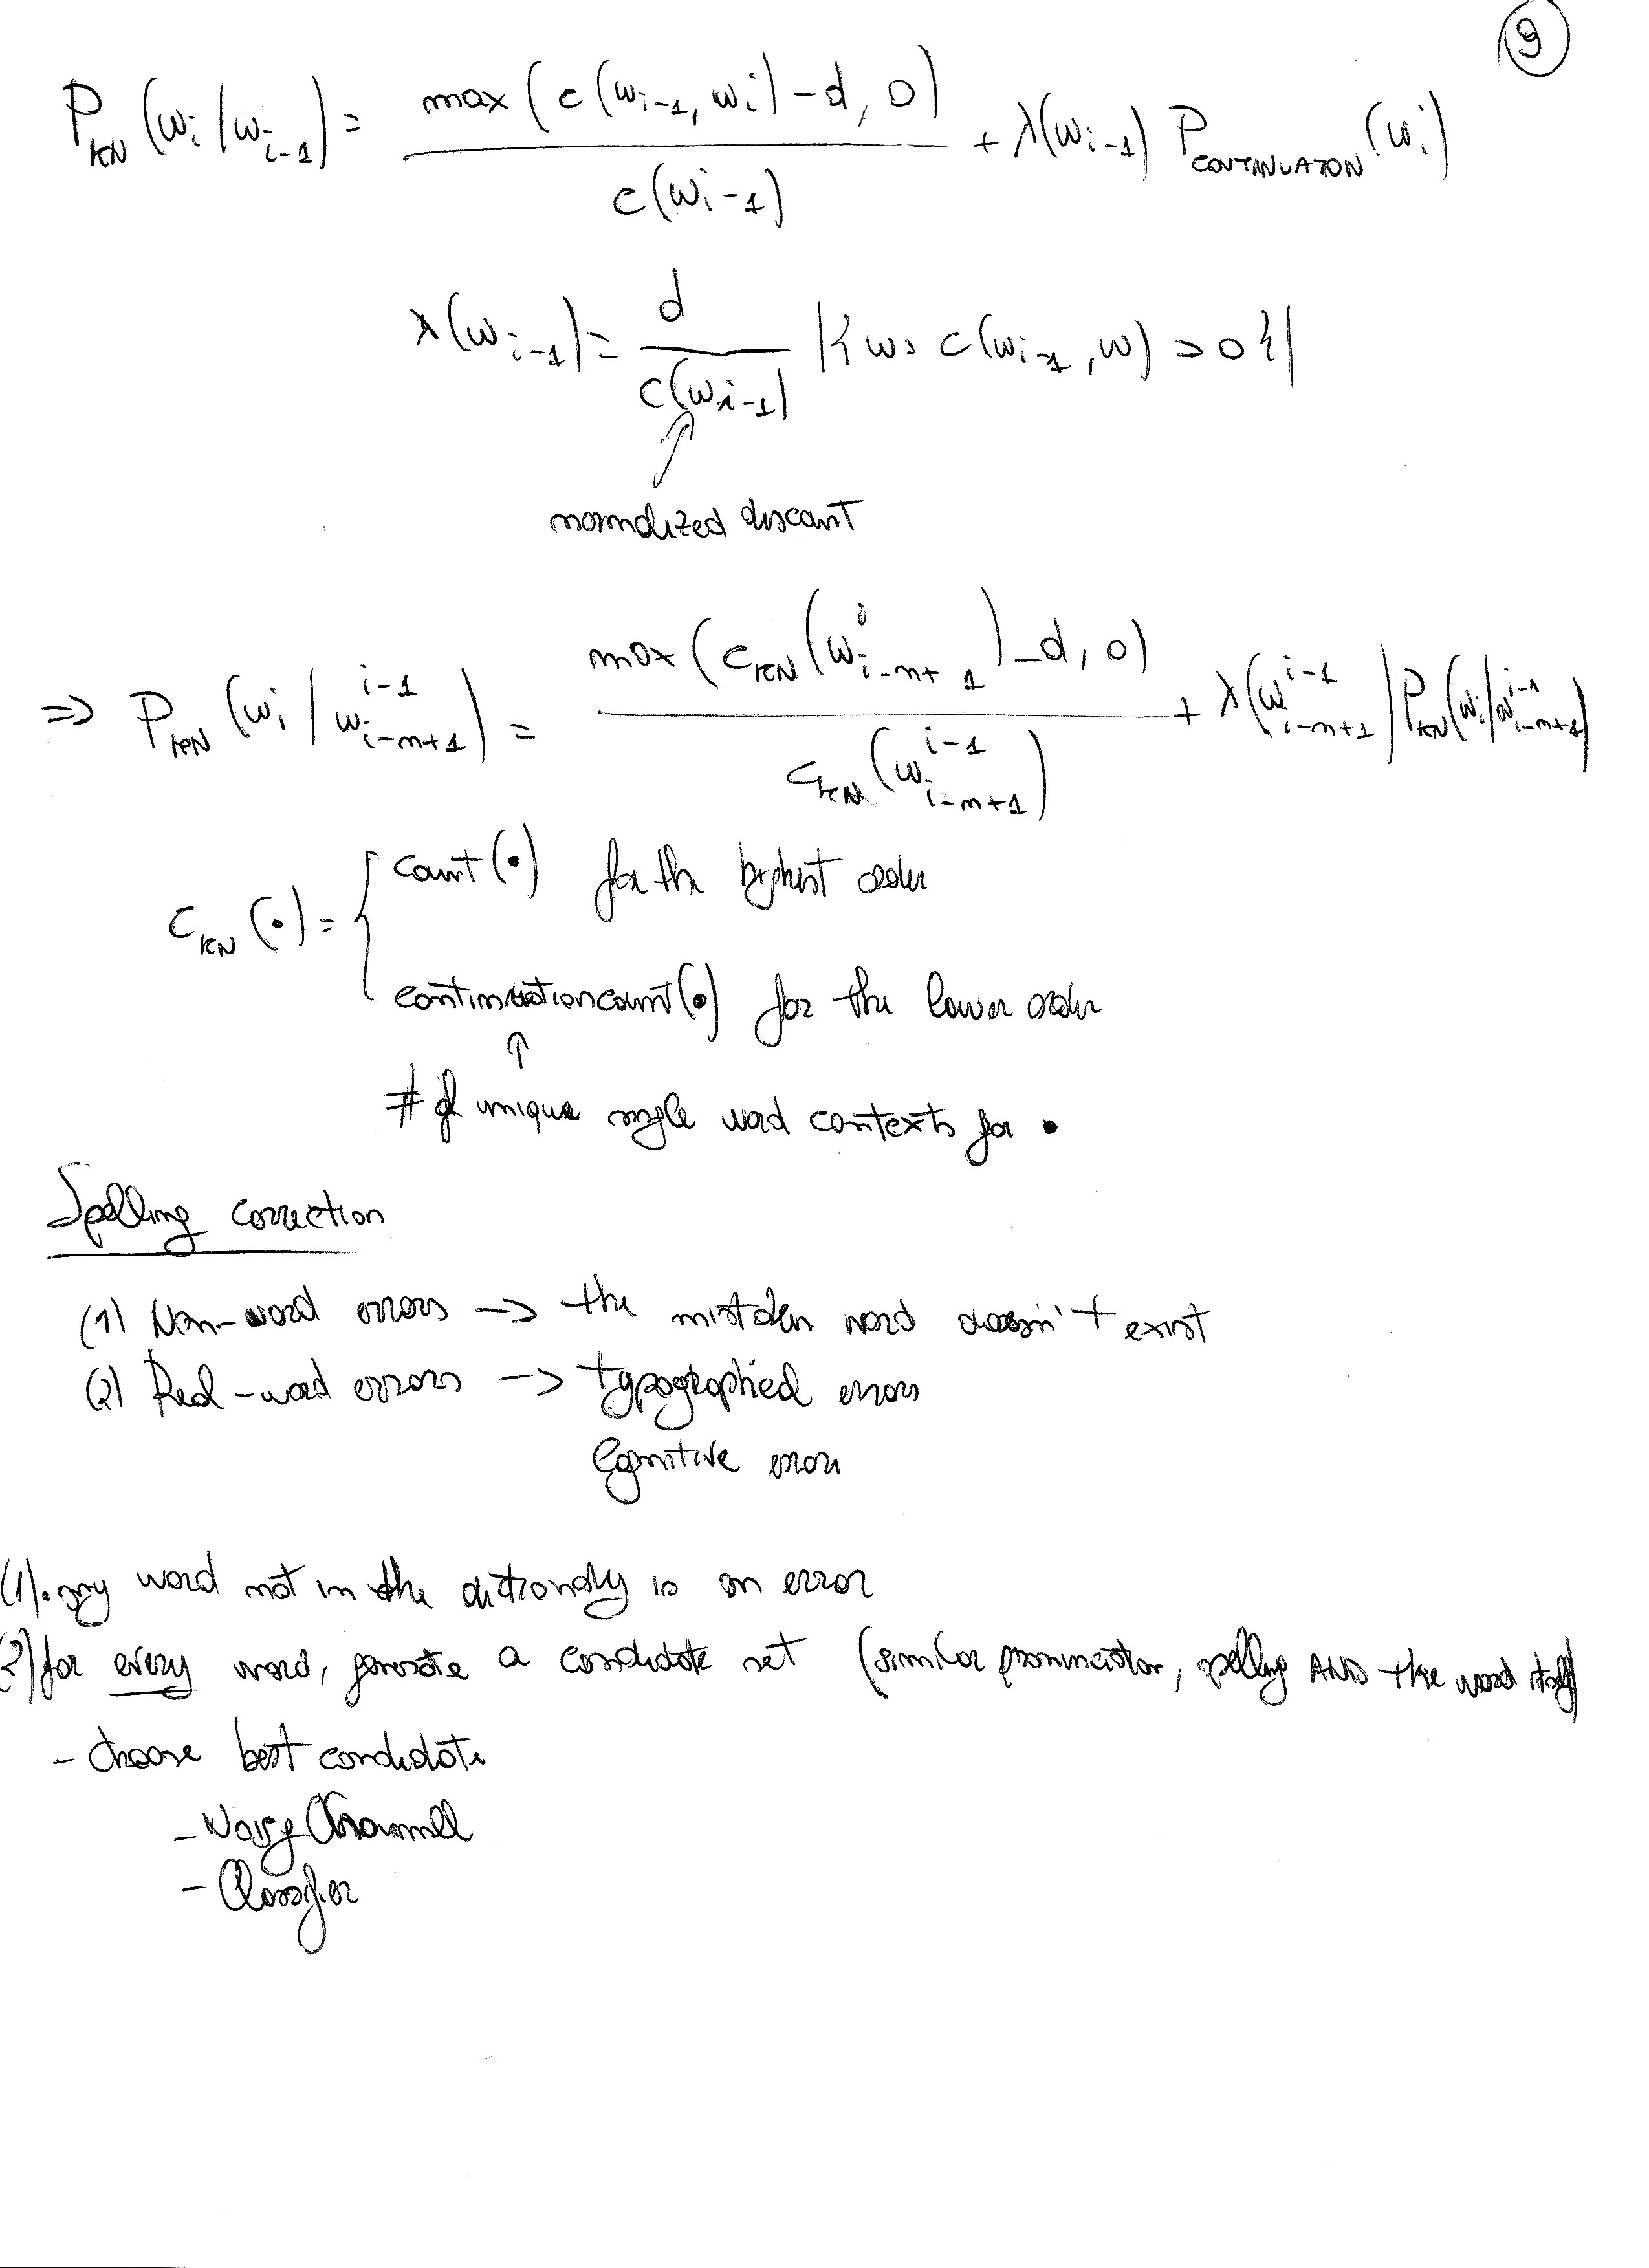 9
P_KN (w_i / w_{i-1}) = max(c(w_{i-1}, w_i) - d, 0) / c(w_{i-1}) + λ(w_{i-1}) P_CONTINUATION (w_i)
λ(w_{i-1}) = d / c(w_{i-1}) |{w: c(w_{i-1}, w) > 0}|
normalized discount
=> P_KN (w_i / w_{i-n+1}^{i-1}) = max(c_KN (w_{i-n+1}^{i}) - d, 0) / c_KN (w_{i-n+1}^{i-1}) + λ(w_{i-n+1}^{i-1}) P_KN (w_i / w_{i-n+1}^{i-1})
count(•) for the highest order
c_KN (•) = {
continuationcount(•) for the lower order
↑
# of unique single word contexts for •
Spelling correction
(1) Non-word errors -> the mistaken word doesn't exist
(2) Real-word errors -> typographical errors
Cognitive errors
(1). any word not in the dictionary is an error
(2) for every word, generate a candidate set (similar pronunciation, spelling AND the word itself)
- choose best candidate
- Noisy Channel
- Classifier